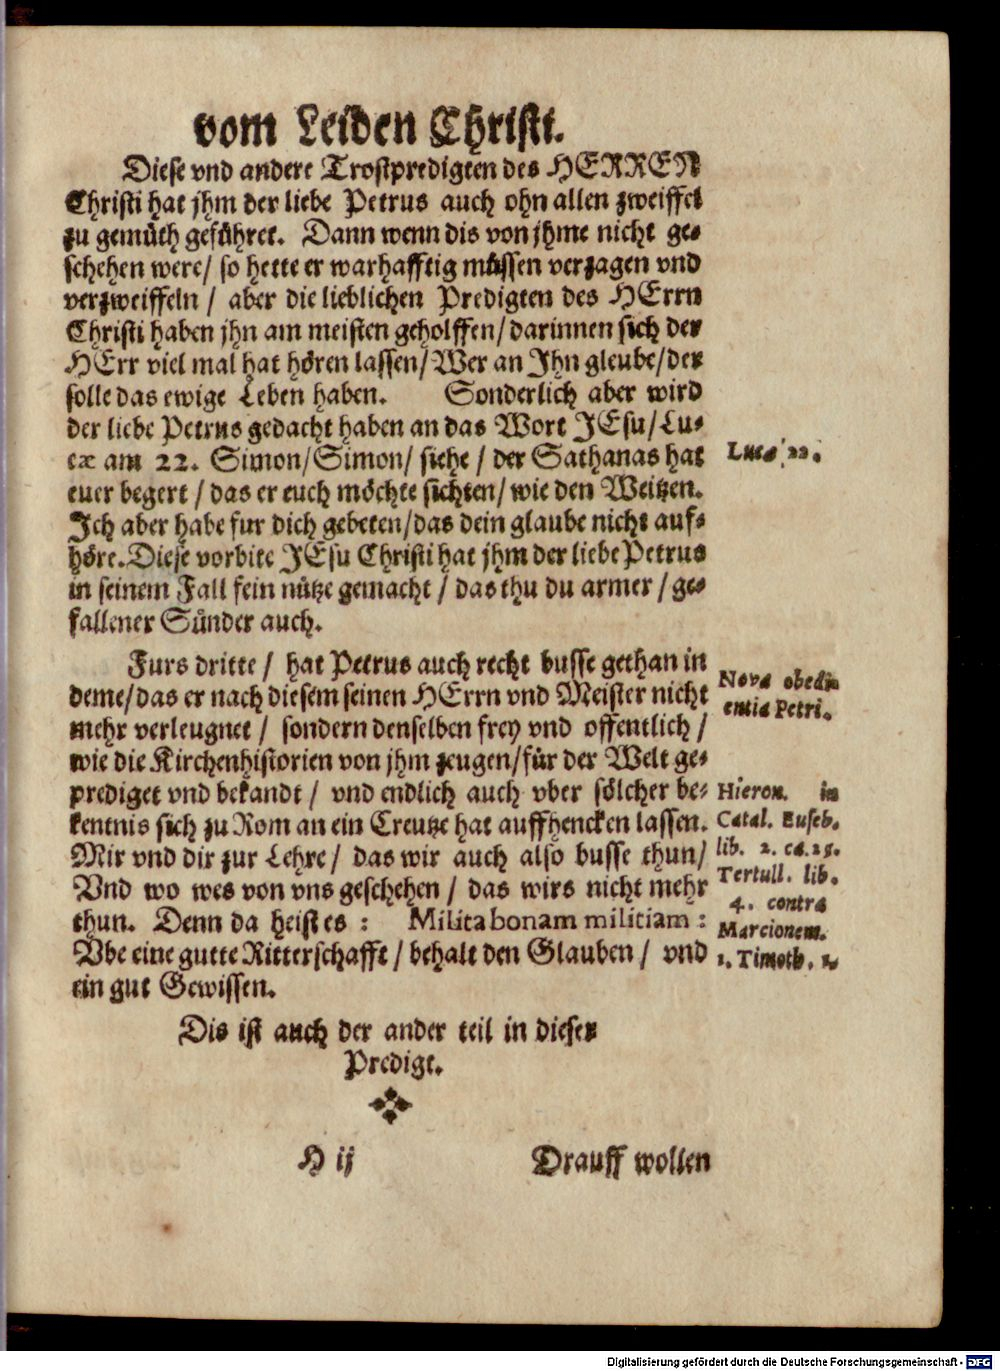 vom Leiden Christi.
Diese vnd andere Trostpredigten des HERREN
Christi hat jhm der liebe Petrus auch ohn allen zweiffel
zu gemüth geführet. Dann wenn dis von jhme nicht ge-
schehen were/ so hette er warhafftig müssen verzagen vnd
verzweiffeln / aber die lieblichen Predigten des HErrn
Christi haben jhn am meisten geholffen/ darinnen sich der
HErr viel mal hat hören lassen/ Wer an Jhn gleube/ der
solle das ewige Leben haben. Sonderlich aber wird
der liebe Petrus gedacht haben an das Wort JEsu/ Lu-
cæ am 22. Simon/ Simon/ siehe / der Sathanas hat
Lucæ 22.
euer begert / das er euch möchte sichten/ wie den Weitzen.
Jch aber habe fur dich gebeten/ das dein glaube nicht auf-
höre. Diese vorbite JEsu Christi hat jhm der liebe Petrus
in seinem Fall fein nütze gemacht / das thu du armer / ge-
fallener Sünder auch.
Furs dritte / hat Petrus auch recht busse gethan in
Nova obedi
deme/ das er nach diesem seinen HErrn vnd Meister nicht
entia Petri.
mehr verleugnet / sondern denselben frey vnd offentlich /
wie die Kirchenhistorien von jhm zeugen/ für der Welt ge-
prediget vnd bekandt / vnd endlich auch vber sölcher be-
Hieron. in
kentnis sich zu Rom an ein Creutze hat auffhencken lassen.
Catal. Euseb.
Mir vnd dir zur Lehre / das wir auch also busse thun/
lib. 2. ca. 25.
Vnd wo wes von vns geschehen / das wirs nicht mehr
Tertull. lib.
4. contra
thun. Denn da heist es : Milita bonam militiam :
Marcionem.
Vbe eine gutte Ritterschafft / behalt den Glauben / vnd
1. Timoth. 1.
ein gut Gewissen.
Dis ist auch der ander teil in dieser
Predigt.
H ij Drauff wollen
Digitalisierung gefördert durch die Deutsche Forschungsgemeinschaft - DFG